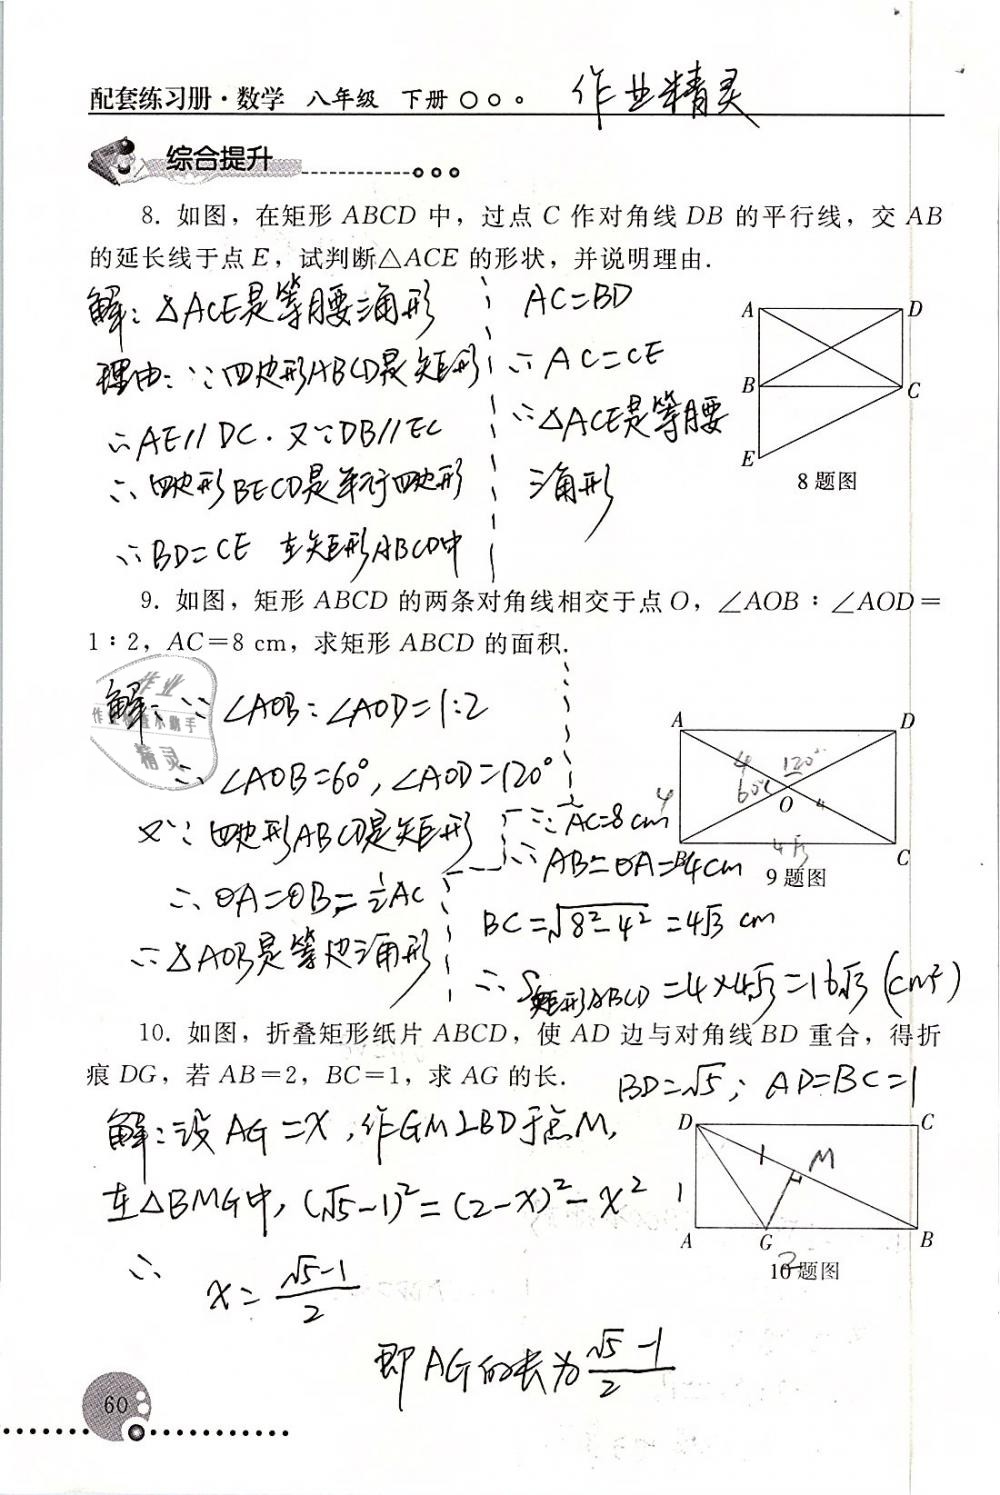 配套练习册·数学 八年级 下册
作业精灵
综合提升
8. 如图，在矩形 ABCD 中，过点 C 作对角线 DB 的平行线，交 AB
的延长线于点 E，试判断△ACE 的形状，并说明理由.
解：△ACE是等腰三角形
理由：∵四边形ABCD是矩形
∴AE∥DC. 又∵DB∥EC
∴四边形BECD是平行四边形
∴BD=CE 在矩形ABCD中
AC=BD
∴AC=CE
∴△ACE是等腰
三角形
A
D
B
C
E
8题图
9. 如图，矩形 ABCD 的两条对角线相交于点 O，∠AOB：∠AOD=
1：2，AC=8 cm，求矩形 ABCD 的面积.
解：∵∠AOB：∠AOD=1:2
∴∠AOB=60°，∠AOD=120°
又∵四边形ABCD是矩形
∴OA=OB=½AC
∴△AOB是等边三角形
∵AC=8cm
∴AB=OA=4cm
BC=√8²-4²=4√3 cm
∴S矩形ABCD=4×4√3=16√3 (cm²)
作业
作业检查小助手
精灵
A
D
4 120°
60°
O 4
4
4√3
B
C
9题图
10. 如图，折叠矩形纸片 ABCD，使 AD 边与对角线 BD 重合，得折
痕 DG，若 AB=2，BC=1，求 AG 的长.
BD=√5；AD=BC=1
解：设AG=x，作GM⊥BD于点M，
在△BMG中，(√5-1)²=(2-x)²-x²
∴ x=(√5-1)/2
即AG的长为(√5-1)/2
D
C
1
M
1
A
G
B
2
10题图
60